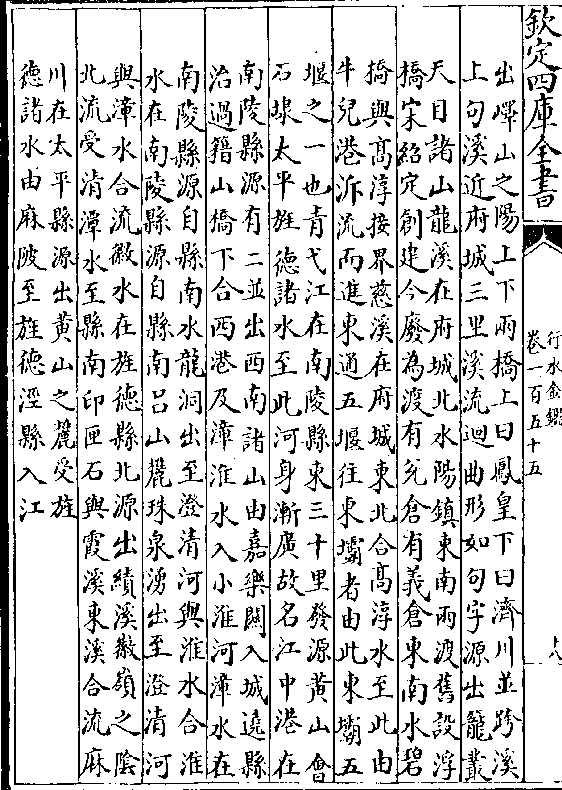 欽定四庫全書
行水金鑑
卷一百五十五
十八
出嶧山之陽上下兩橋上曰鳳皇下曰濟川並跨溪
上句溪近府城三里溪流迴曲形如句字源出籠叢
天目諸山龍溪在府城北水陽鎮東南兩渡舊設浮
橋宋紹定創建今廢為渡有兊倉有義倉東南水碧
橋與髙淳接界慈溪在府城東北合髙淳水至此由
牛兒港泝流而進東通五堰往東壩者由此東壩五
堰之一也青弋江在南陵縣東三十里發源黄山會
石埭太平旌德諸水至此河身漸廣故名江中港在
南陵縣源有二並出西南諸山由嘉樂關入城遶縣
治過籍山橋下合西港及漳淮水入小淮河漳水在
南陵縣源自縣南水龍洞出至澄清河與淮水合淮
水在南陵縣源自縣南吕山麓珠泉湧出至澄清河
與漳水合流徽水在旌德縣北源出績溪徽嶺之陰
北流受淯潭水至縣南印匣石與霞溪東溪合流麻
川在太平縣源出黄山之麓受旌
德諸水由麻陂至旌德涇縣入江